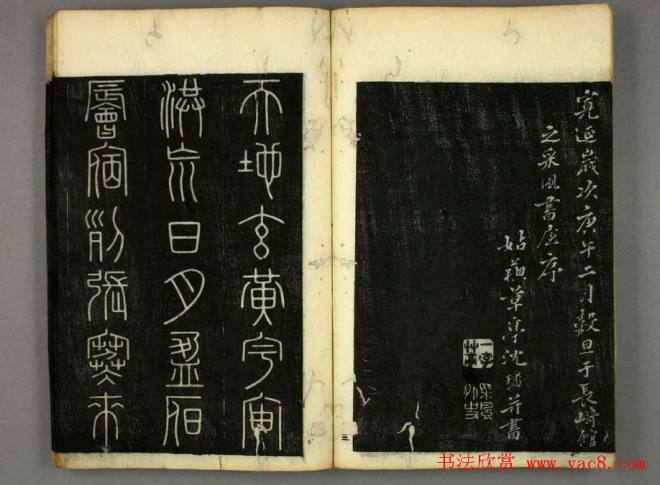 寛延歲次庚午二月穀旦于長崎館
之采風書屋序
姑蘇草亭沈并書
天地玄黃宇宙
洪荒日月盈昃
辰宿列張寒來
书法欣赏 www.yac8.com